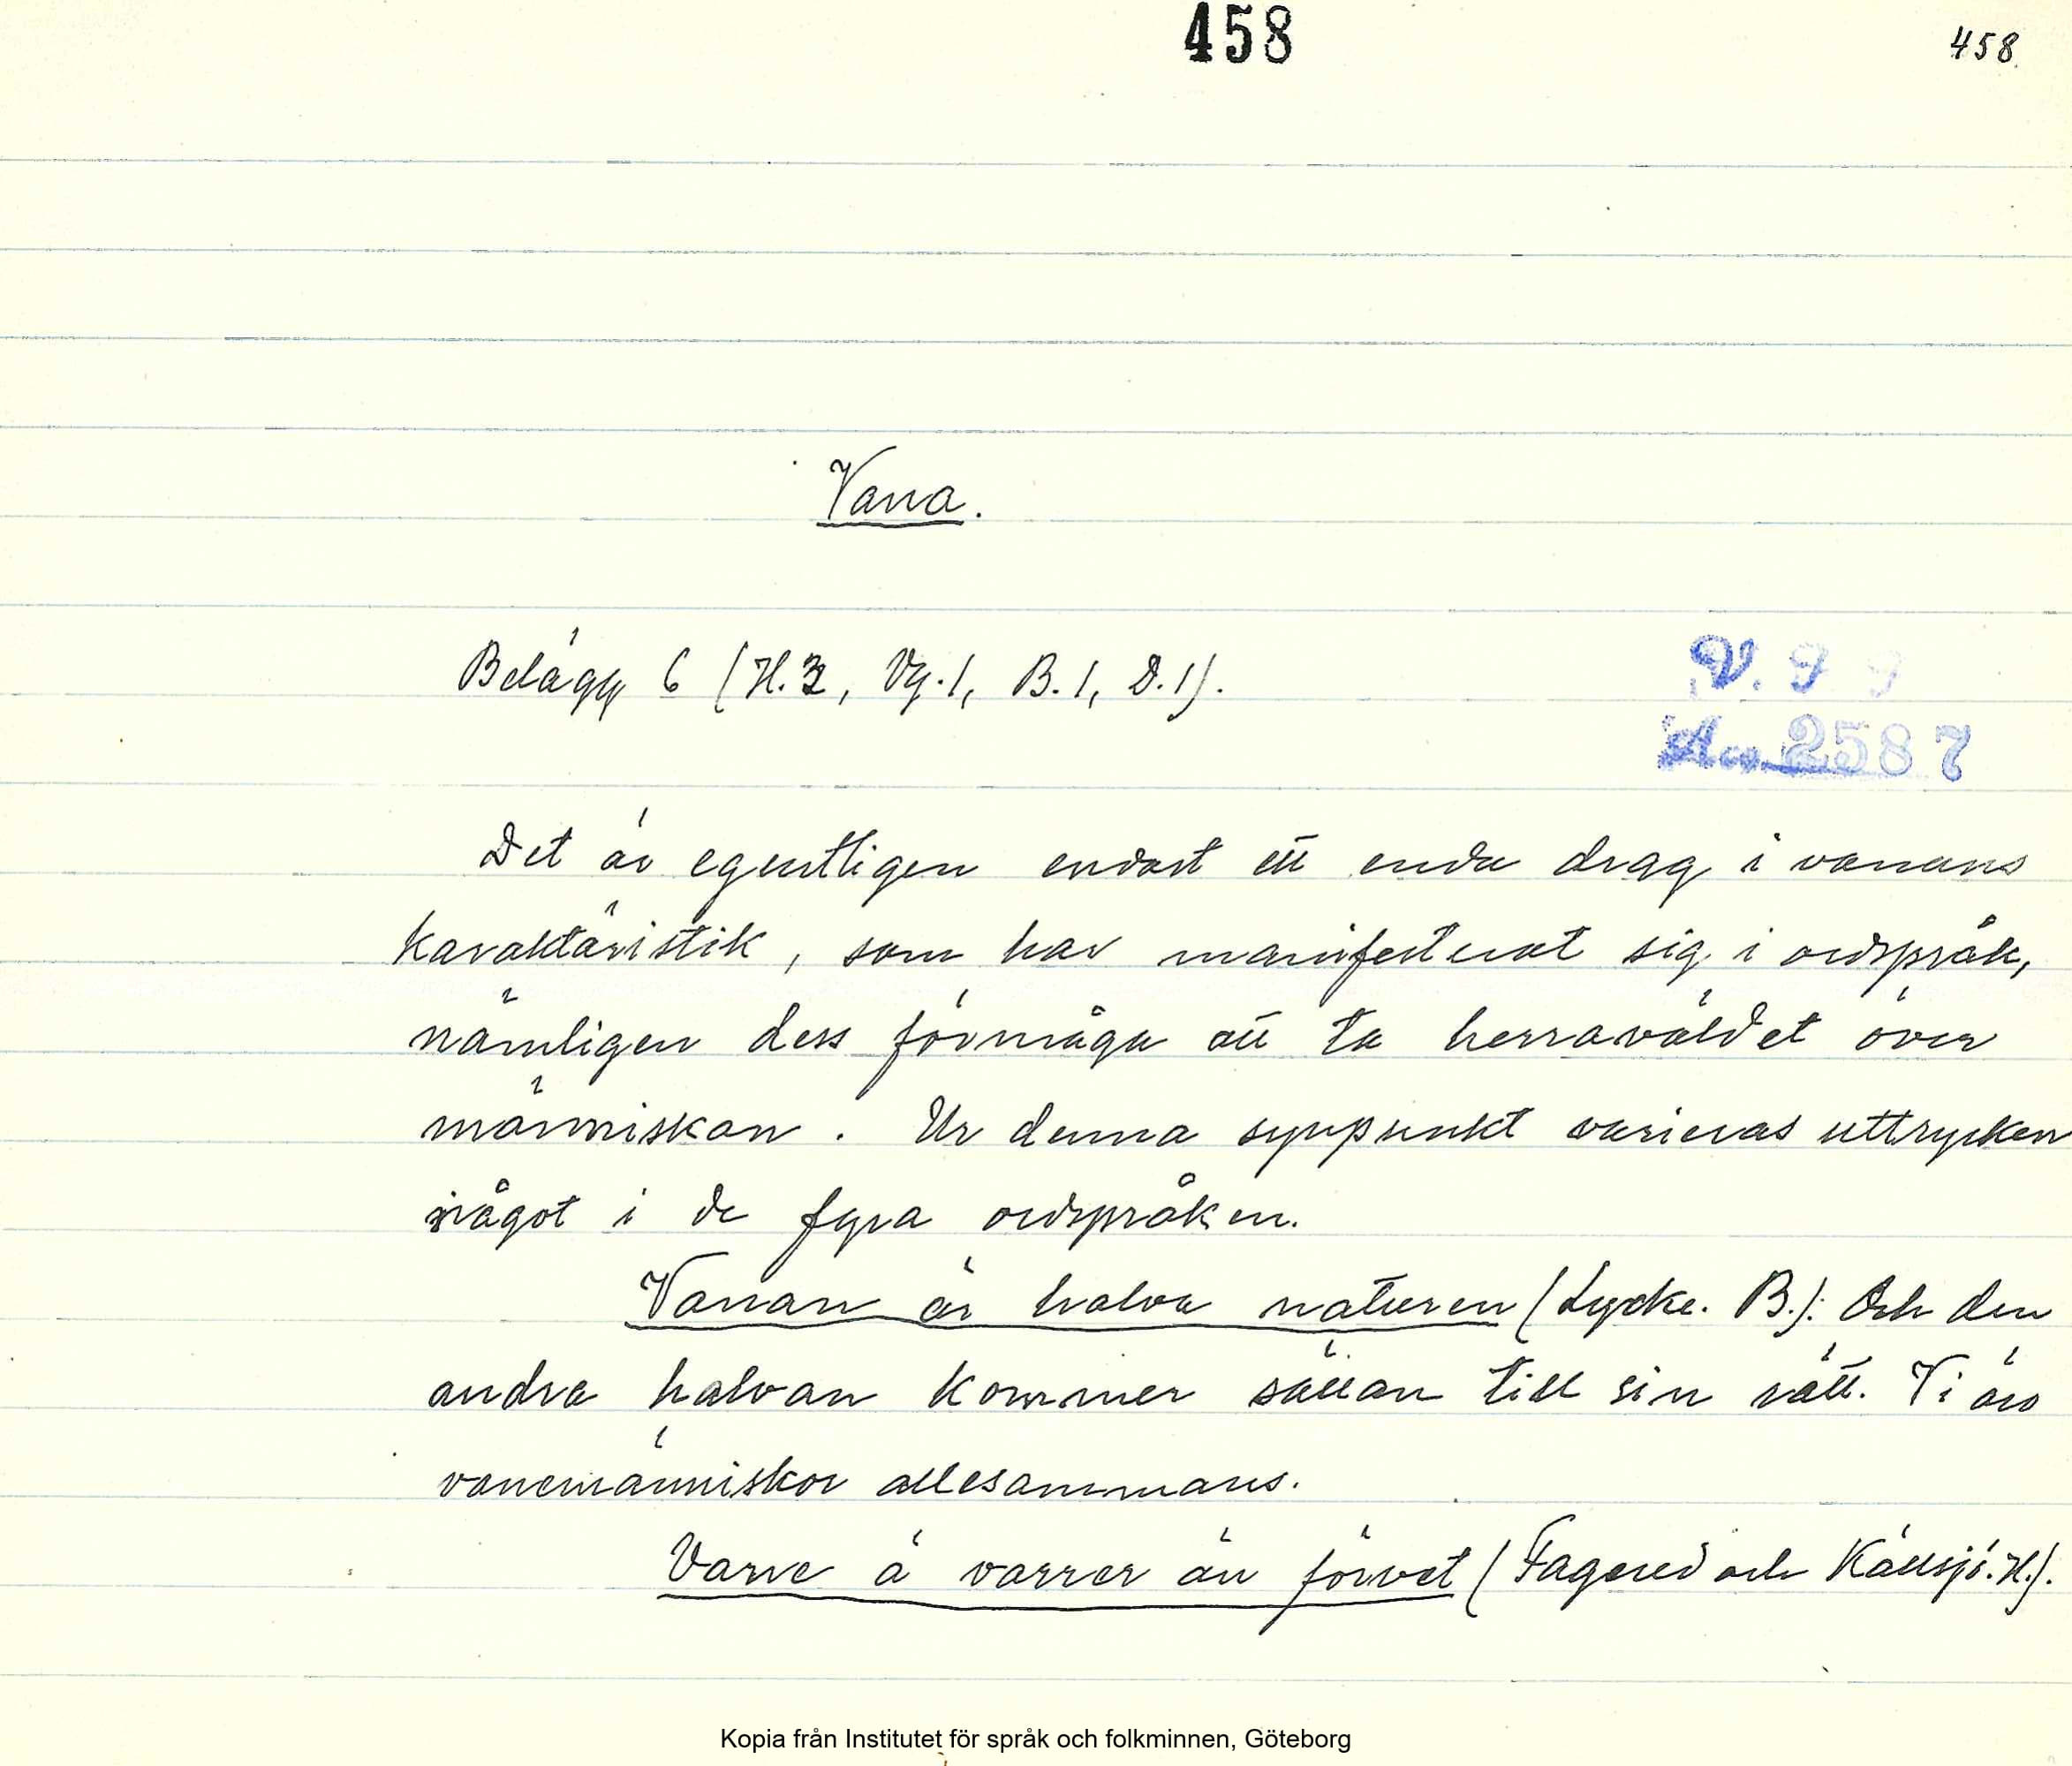 458
458
Vana.
Belägg 6 (H.3, Vg.1, B.1, D.1).
V. 9 9
Acc. 2587
Det är egentligen endast ett enda drag i vanans
karaktäristik, som har manifesterat sig i ordspråk,
nämligen dess förmåga att ta herraväldet över
människan. Ur denna synpunkt varieras uttrycken
något i de fyra ordspråken.
Vanan är halva naturen (Lycke. B.). Och den
andra halvan kommer sällan till sin rätt. Vi äro
vanemänniskor allesammans.
Vane ä varrer än förvet (Fagered och Källsjö. H.).
Kopia från Institutet för språk och folkminnen, Göteborg